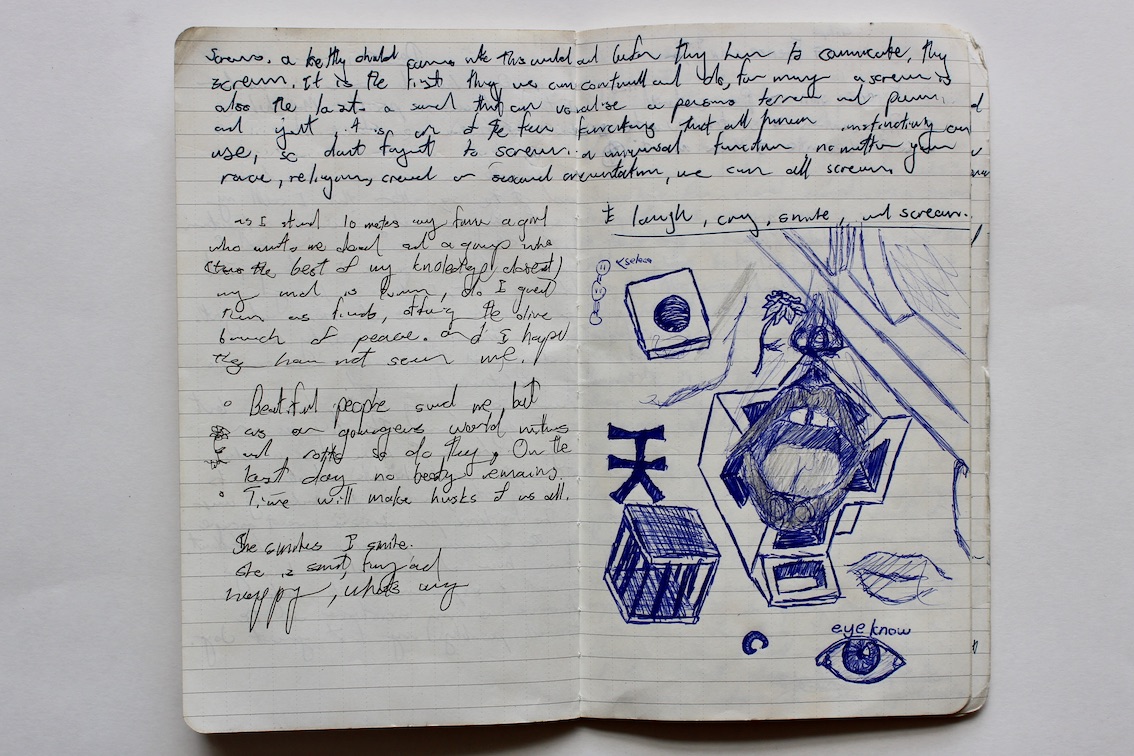 Screams. a healthy child comes into this world and before they learn to communicate, they
scream. It is the first thing we can control and do, for many a scream is
also the last. a sound that can visualise a persons terror and
and just, it is one of the few functions that all human instinctively can
use, so dont forget to scream. a universal function, no matter your
race, religion, creed or sexual orientation, we can all scream.
I laugh, cry, smile, and scream.
as I stand 10 metres away from a girl
who wants me dead and a group who
(to the best of my knowledge, doesnt)
my mind is, do I greet
them as friends, offering the olive
branch of peace. and I hope
they have not seen me.
Beautiful people surround me but
as our gorgeous world withers
and rotts so do they, On the
last day no body remains.
Time will make husks of us all.
She smiles I smile.
she is smart, funny and
happy, whats
eye know